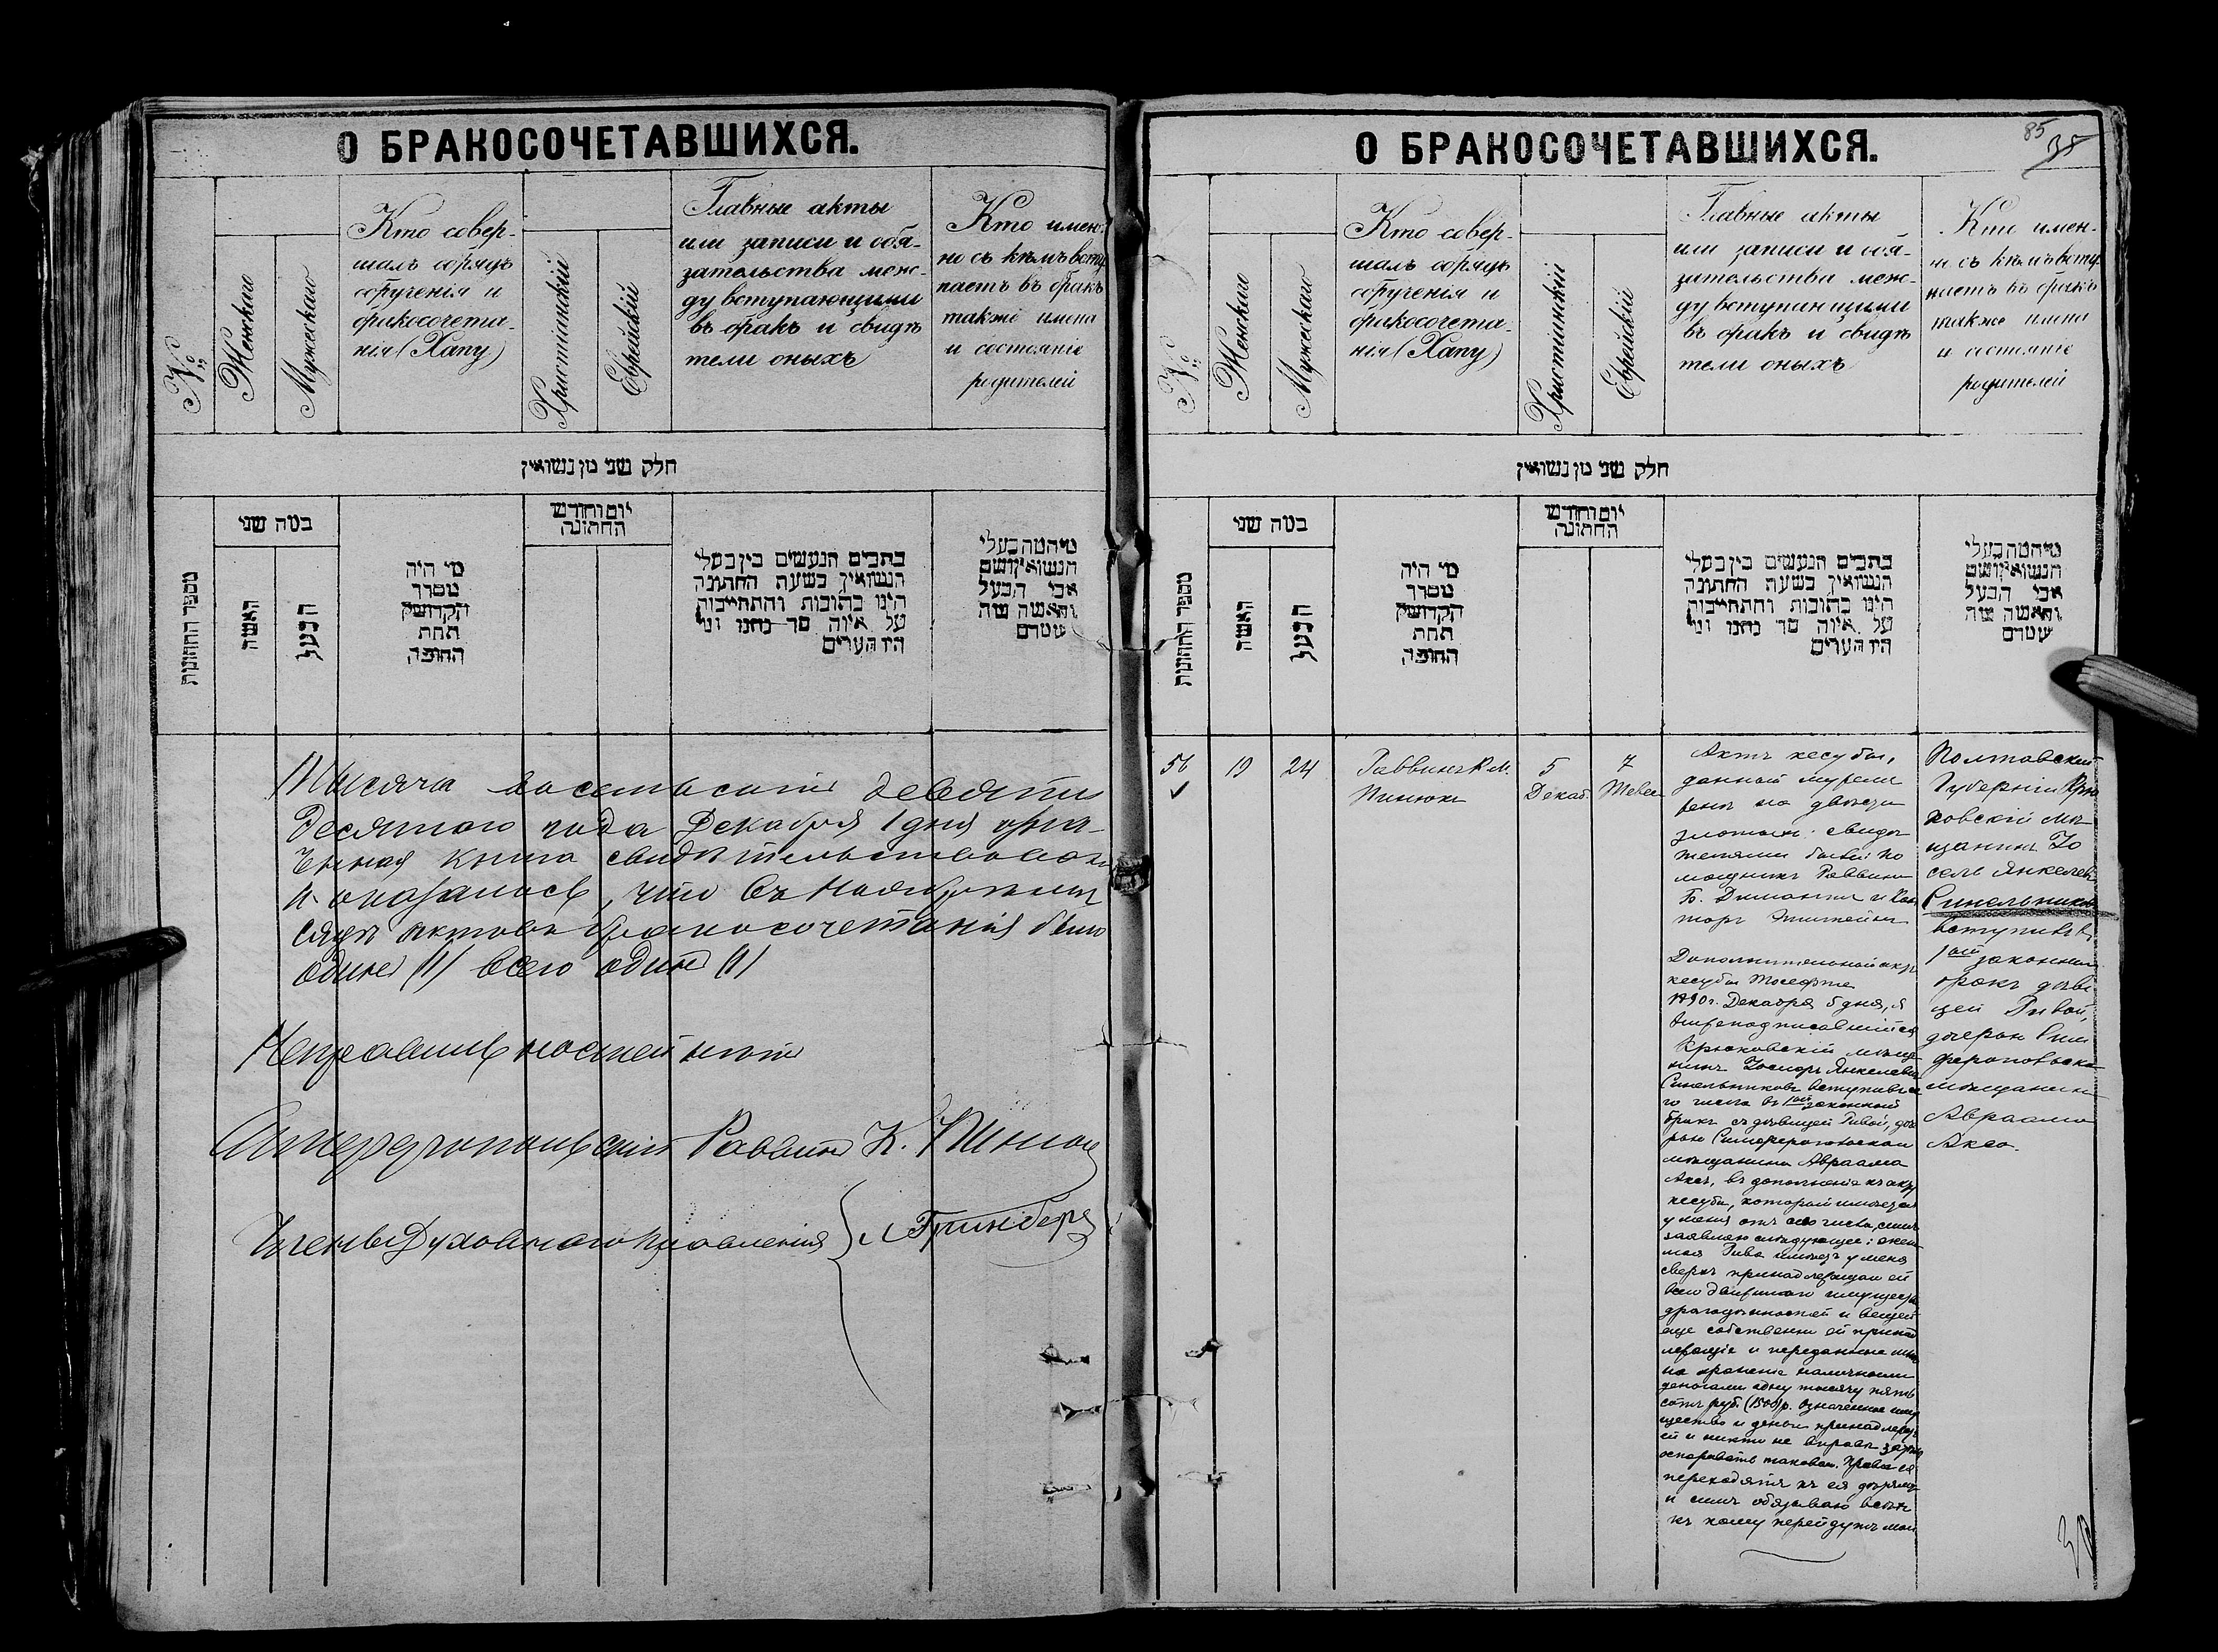 О БРАКОСОЧЕТАВШИХСЯ.
№
Женскаго
Мужескаго
Кто совер-
шалъ обрядъ
обрученія и
бракосочета-
нія (Хапу)
Христіанскій
Еврейскій
Главные акты
или записи и обя-
зательства меж-
ду вступающими
въ бракъ и свидѣ
тели оныхъ
Кто имен-
но съ кѣмъ всту
паетъ въ бракъ
также имена
и состояніе
родителей
חלק שני מן נשואין
מספר החתונות
במה שני
האשה
הבעל
מי היה
מסדר
הקדושין
תחת
החופה
יום וחודש
החתונה
כתבים הנעשים בין בעלי
הנשואין בשעת החתונה
היינו כתובות והתחייבות
על איזה סך נתנו ומי
היו העדים
מי המה בעלי
הנשואין ושם
אבי הבעל
והאשה מה
שמם
Тысяча восемьсотъ девяти
десятаго года Декабря 1 дня бра-
чная книга свидѣтельствована
и оказалось, что въ Ноябрѣ мѣ
сяцѣ актовъ бракосочетанія было
одинъ (1) всего одинъ (1)
Симферопольскій Раввинъ К. Пинюкъ
Члены Духовнаго Правленія Гринберг
О БРАКОСОЧЕТАВШИХСЯ.
85
№
Женскаго
Мужескаго
Кто совер-
шалъ обрядъ
обрученія и
бракосочета-
нія (Хапу)
Христіанскій
Еврейскій
Главные акты
или записи и обя-
зательства меж-
ду вступающими
въ бракъ и свидѣ
тели оныхъ
Кто имен-
но съ кѣмъ всту
паетъ въ бракъ
также имена
и состояніе
родителей
חלק שני מן נשואין
מספר החתונות
במה שני
האשה
הבעל
מי היה
מסדר
הקדושין
תחת
החופה
יום וחודש
החתונה
כתבים הנעשים בין בעלי
הנשואין בשעת החתונה
היינו כתובות והתחייבות
על איזה סך נתנו ומי
היו העדים
מי המה בעלי
הנשואין ושם
אבי הבעל
והאשה מה
שמם
56
19
24
Раввинъ
Пинюкъ
5
Декаб.
7
Тевес
Актъ кесубы,
данный
на двѣсти
злотыхъ: свидѣ
телями были по
мощникъ Раввина
Б. Димантъ и Кан
торъ
Дополнительный актъ
кесубы Тосефте
1890 г. Декабря 5 дня, я
нижеподписавшійся
Крюковскій мѣща
нинъ Іосифъ Янкелевъ
Синельниковъ вступивъ се
го числа въ 1ый законный
бракъ съ дѣвицей Ривой, доч
рью Симферопольскаго
мѣщанина Авраама
Аксъ, въ дополненіе къ акту
кесубы, который имѣется
у меня отъ сего числа, симъ
заявляю слѣдующее: жена
моя Рива имѣетъ у меня
сверхъ принадлежащаго ей
всего движимаго имущества
драгоцѣнностей и вещей
еще собственно ей принад
лежащіе и переданные мнѣ
на храненіе наличными
деньгами одну тысячу пять
сотъ руб. (1500) р. означенное иму
щество и деньги принадлежатъ
ей и никто не вправѣ
оспаривать таковыя. Права ея
переходятъ къ ея
и симъ обязываю всѣхъ
къ кому перейдутъ мои
Полтавской
Губерніи Крю
ковскій мѣ
щанинъ Іо
сель Янкелев
Синельников
вступилъ въ
1ый законный
бракъ съ дѣви
цей Ривой,
дочерью Сим
феропольска
мѣщанина
Авраама
Аксо.